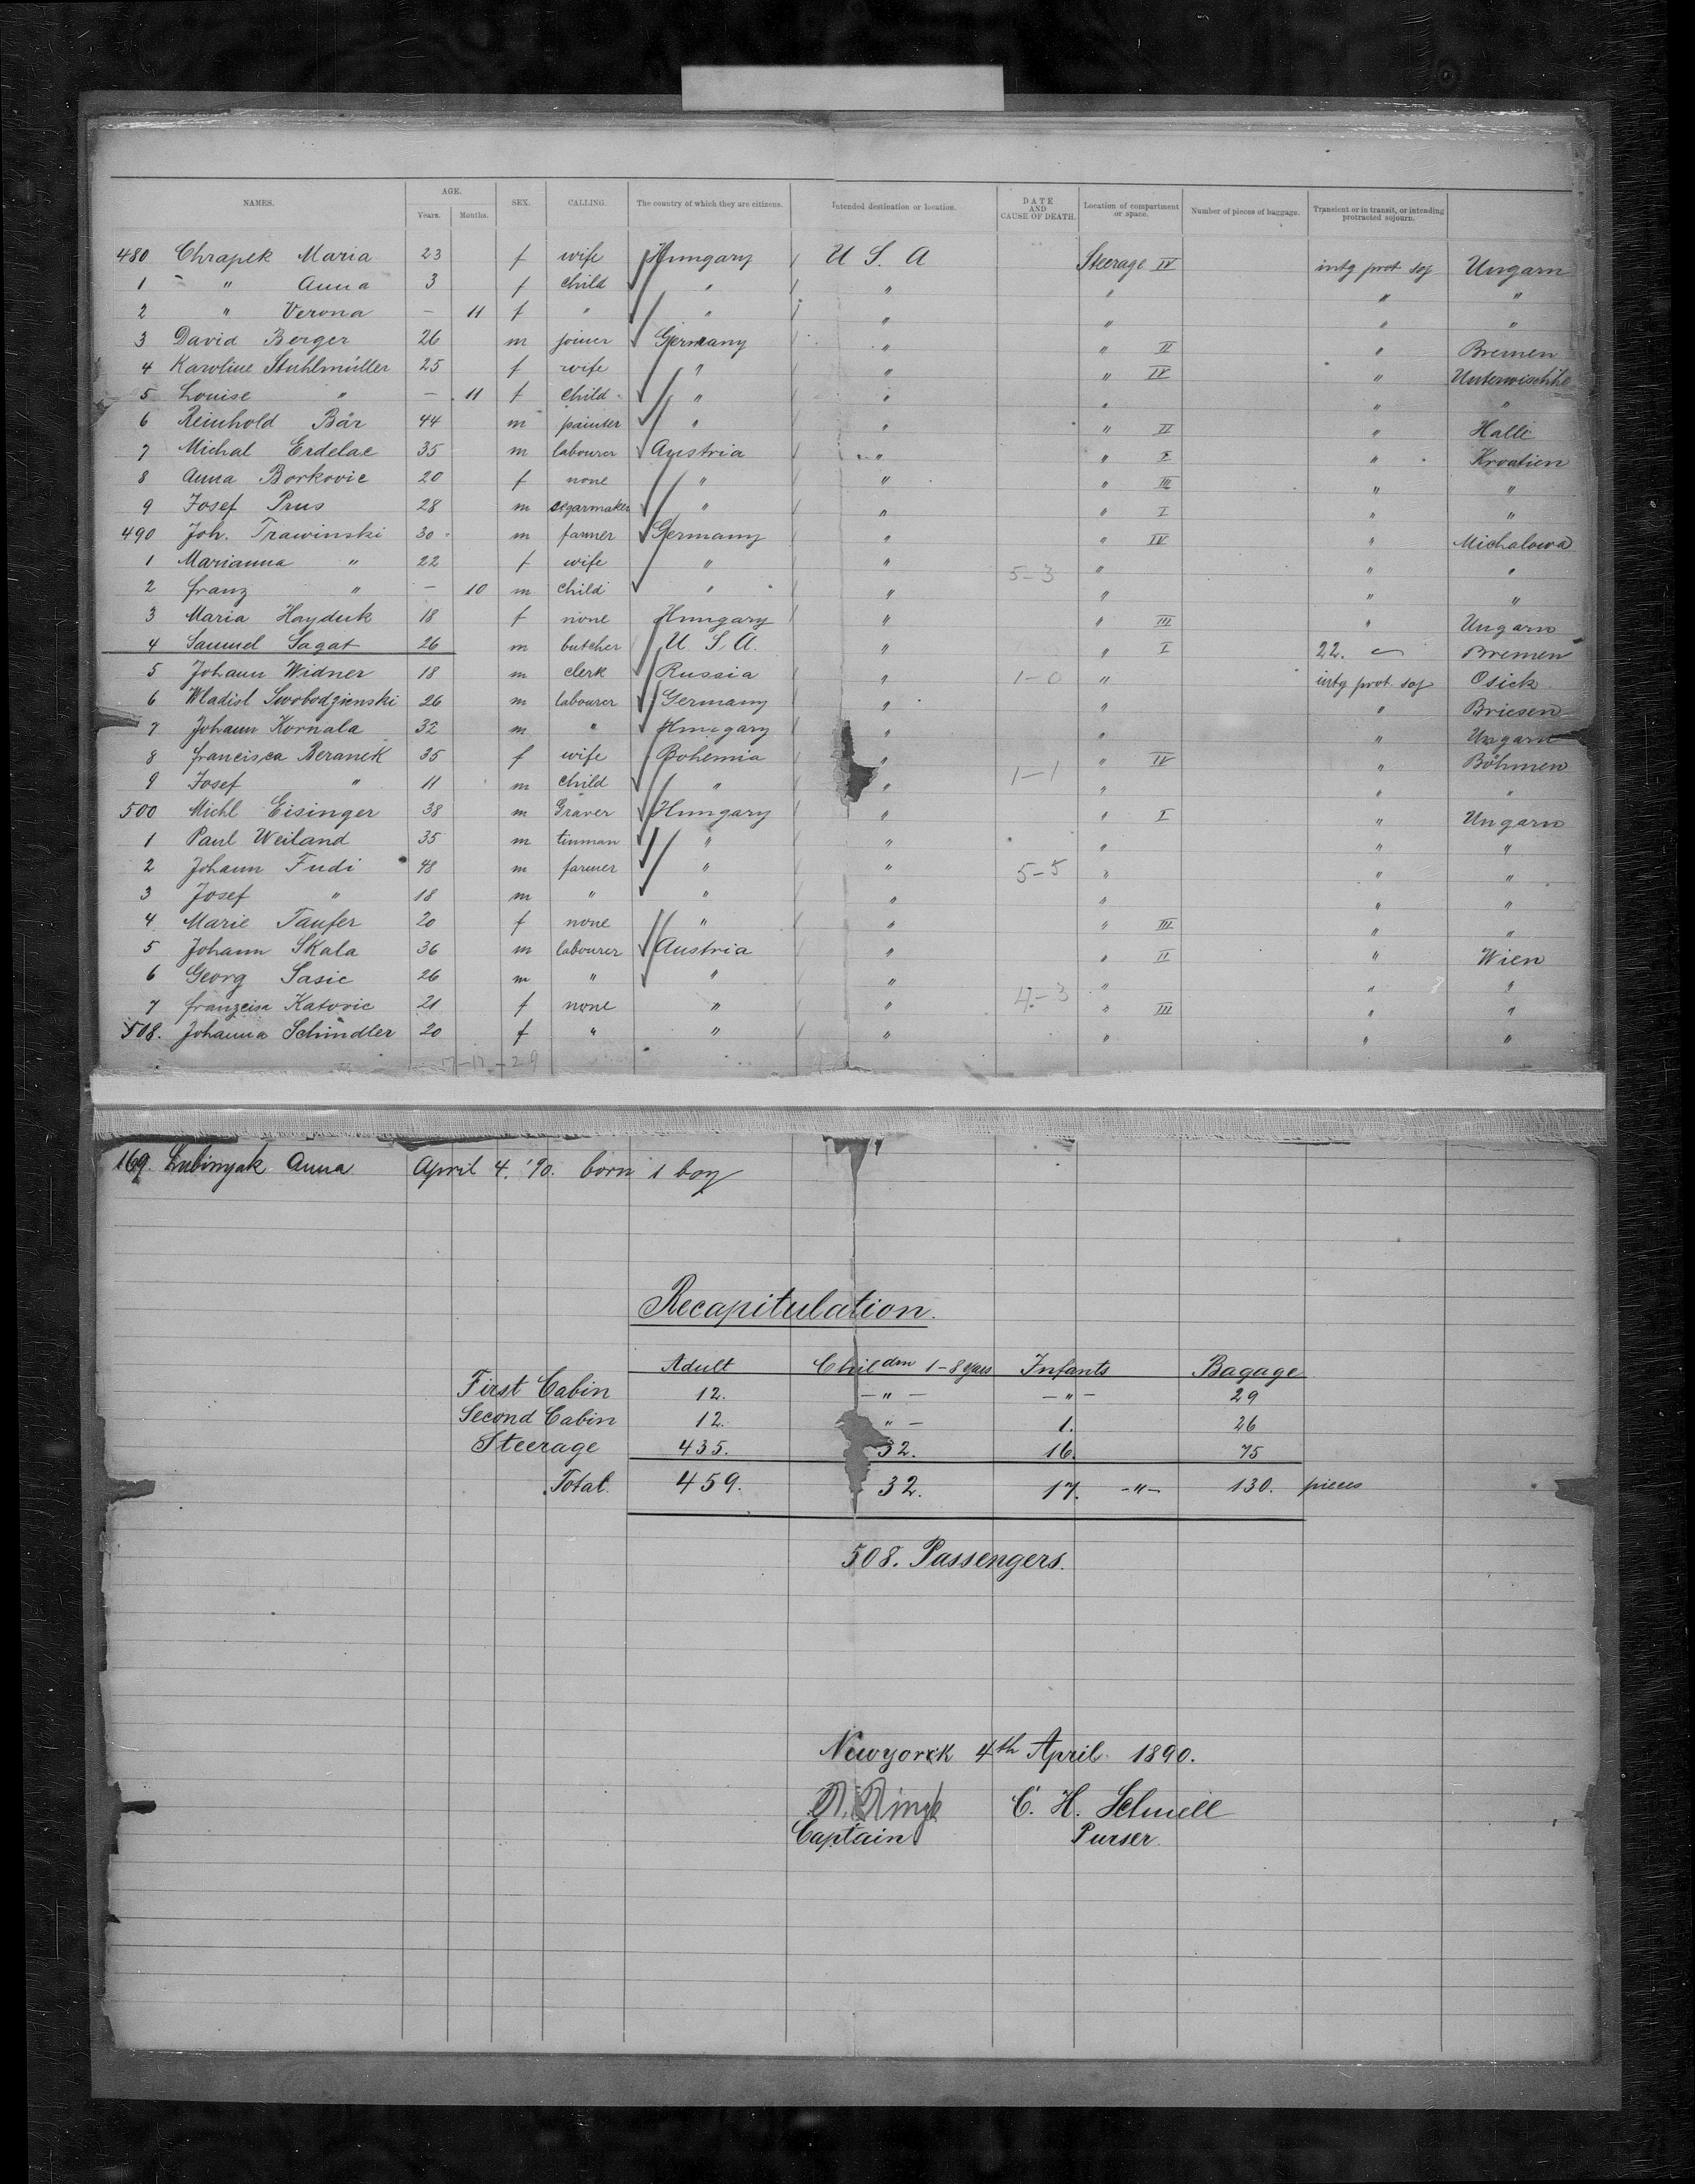 NAMES. AGE. Years. Months. SEX. CALLING. The country of which they are citizens. Intended destination or location. DATE AND CAUSE OF DEATH. Location of compartment or space. Number of pieces of baggage. Transient or in transit, or intending protracted sojourn.
480 Chrapek Maria 23 f wife Hungary U. S. A Steerage IV intg prot soj Ungarn
1 " Anna 3 f child " " " " "
2 " Verona — 11 f " " " " " "
3 David Berger 26 m joiner Germany " " II " Bremen
4 Karoline Stuhlmüller 25 f wife " " " IV "
5 Louise " — 11 f child " " " " "
6 Reinhold Bär 44 m painter " " " II " Halle
7 Michal Erdelac 35 m labourer Austria " " I " Kroatien
8 Anna Borkovic 20 f none " " " III " "
9 Josef Prus 28 m segarmaker " " " I " "
490 Joh. Trawinski 30 m farmer Germany " " IV " Michalowa
1 Marianna " 22 f wife " " 5-3 " " "
2 franz " — 10 m child " " " " "
3 Maria Hayduk 18 f none Hungary " " III " Ungarn
4 Samuel Sagat 26 m butcher U. S. A. " " I 22. Bremen
5 Johann Widner 18 m clerk Russia " 1-0 " intg prot. soj Osick
6 Wladisl Swobodzienski 26 m labourer Germany " " " Briesen
7 Johann Kornala 32 m " Hungary " " " Ungarn
8 francisca Beranek 35 f wife Bohemia " " IV " Böhmen
9 Josef " 11 m child " " 1-1 " " "
500 Michl Eisinger 38 m Graver Hungary " " I " Ungarn
1 Paul Weiland 35 m tinman " " " " "
2 Johann Fudi 48 m farmer " " 5-5 " " "
3 Josef " 18 m " " " " " "
4 Marie Taufer 20 f none " " " III " "
5 Johann Skala 36 m labourer Austria " " II " Wien
6 Georg Sasic 26 m " " " " " "
7 franzcisa Katovic 21 f none " " 4-3 " III " "
508. Johanna Schindler 20 f " " " " " "
169. Lubinyak Anna April 4. '90. born 1 boy
Recapitulation.
Adult Children 1-8 years Infants Bagage
First Cabin 12. — " — — " — 29
Second Cabin 12. " — 1. 26
Steerage 435. 32. 16. 75
Total. 459. 32. 17. -"- 130. pieces
508. Passengers.
Newyorck 4th April 1890.
R. Ringk C. H. Schnell
Captain Purser